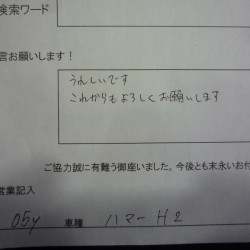 検索ワード
言お願いします！
うれしいです
これからもよろしくお願いします
ご協力誠に有難う御座いました。今後とも末永いお付
営業記入
05y 車種 ハマーH2